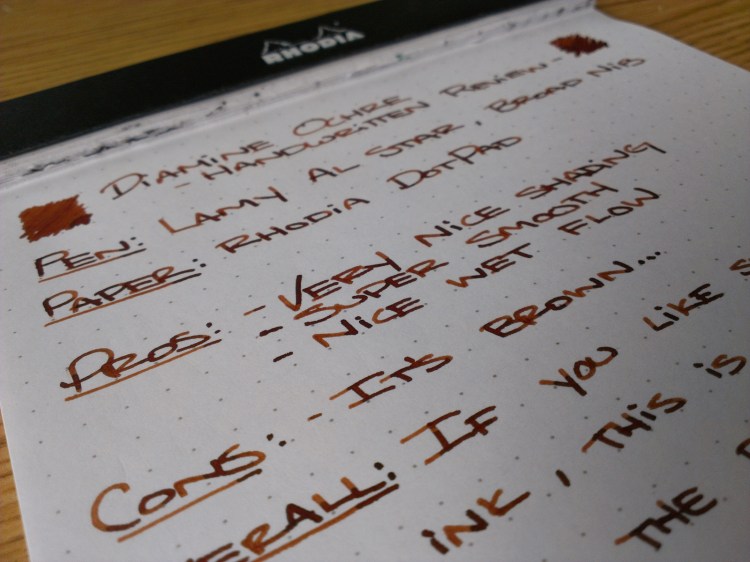 RHODIA
DIAMINE OCHRE
- HANDWRITTEN REVIEW -
PEN: LAMY AL STAR, BROAD NIB
PAPER: RHODIA DOTPAD
PROS: - VERY NICE SHADING
- SUPER SMOOTH
- NICE WET FLOW
CONS: - IT'S BROWN...
ERALL: IF YOU LIKE
INK, THIS IS
THE